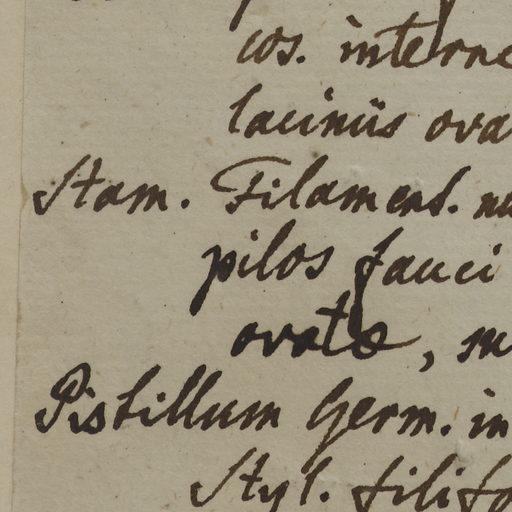 cos. interne
laciniis ova
Stam. Filament. nu
pilos fauci
ovatæ, su
Pistillum Germ. in
Styl. filifo